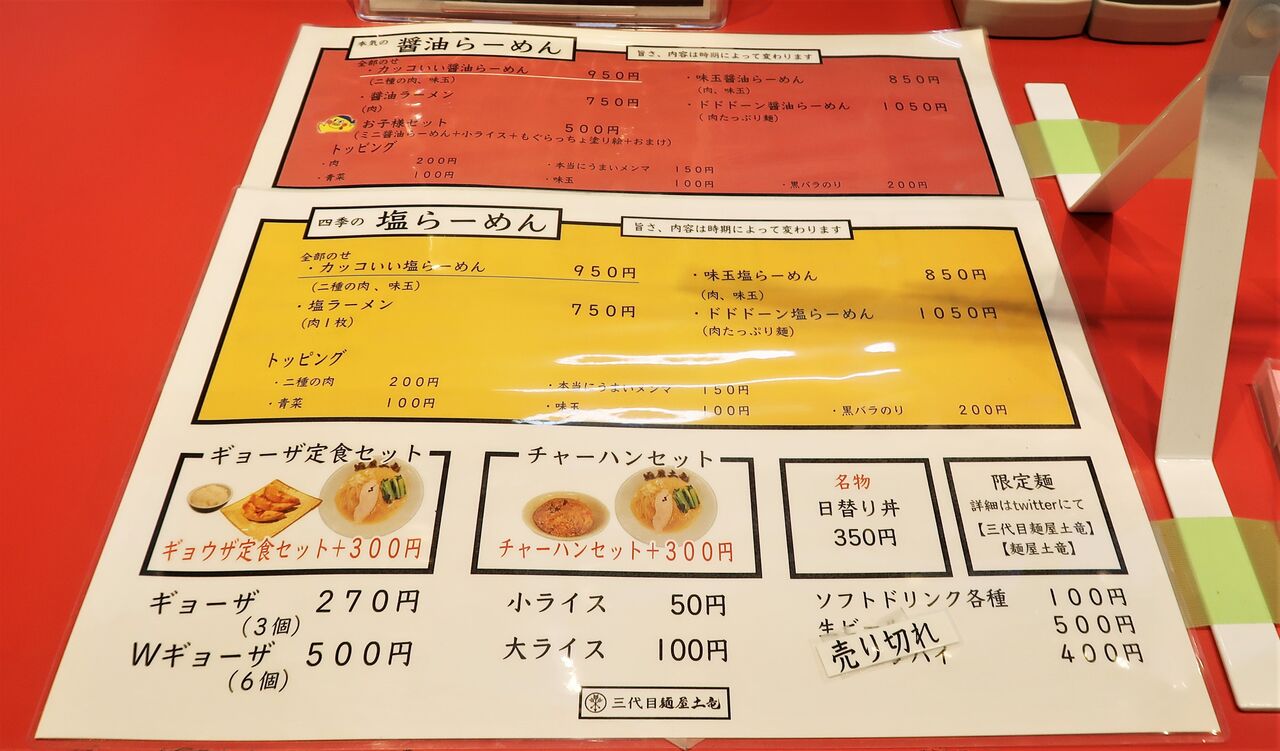 本気の 醤油らーめん
旨さ、内容は時期によって変わります
全部のせ
・カッコいい醤油らーめん 950円
(二種の肉、味玉)
・醤油ラーメン 750円
(肉)
お子様セット 500円
(ミニ醤油らーめん+小ライス+もぐらっちょ塗り絵+おまけ)
・味玉醤油らーめん 850円
(肉、味玉)
・ドドドーン醤油らーめん 1050円
(肉たっぷり麺)
トッピング
・肉 200円
・本当にうまいメンマ 150円
・青菜 100円
・味玉 100円
・黒バラのり 200円
四季の 塩らーめん
旨さ、内容は時期によって変わります
全部のせ
・カッコいい塩らーめん 950円
(二種の肉、味玉)
・塩ラーメン 750円
(肉1枚)
・味玉塩らーめん 850円
(肉、味玉)
・ドドドーン塩らーめん 1050円
(肉たっぷり麺)
トッピング
・二種の肉 200円
・本当にうまいメンマ 150円
・青菜 100円
・味玉 100円
・黒バラのり 200円
ギョーザ定食セット
ギョウザ定食セット+300円
チャーハンセット
チャーハンセット+300円
名物
日替り丼
350円
限定麺
詳細はtwitterにて
【三代目麺屋土竜】
【麺屋土竜】
ギョーザ 270円
(3個)
Wギョーザ 500円
(6個)
小ライス 50円
大ライス 100円
ソフトドリンク各種 100円
生ビ 500円
売り切れ
ハイ 400円
三代目麺屋土竜